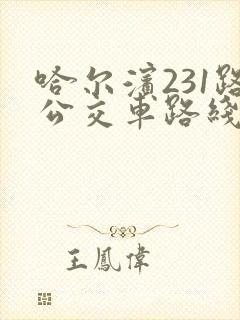 哈尔濱231路
公交車路綫
王鳳偉